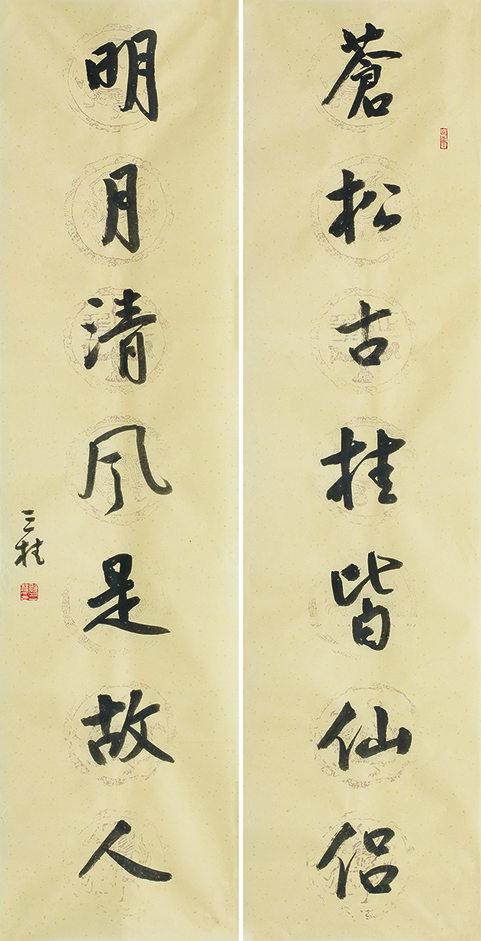 蒼松古桂皆仙侣
明月清风是故人
三桂